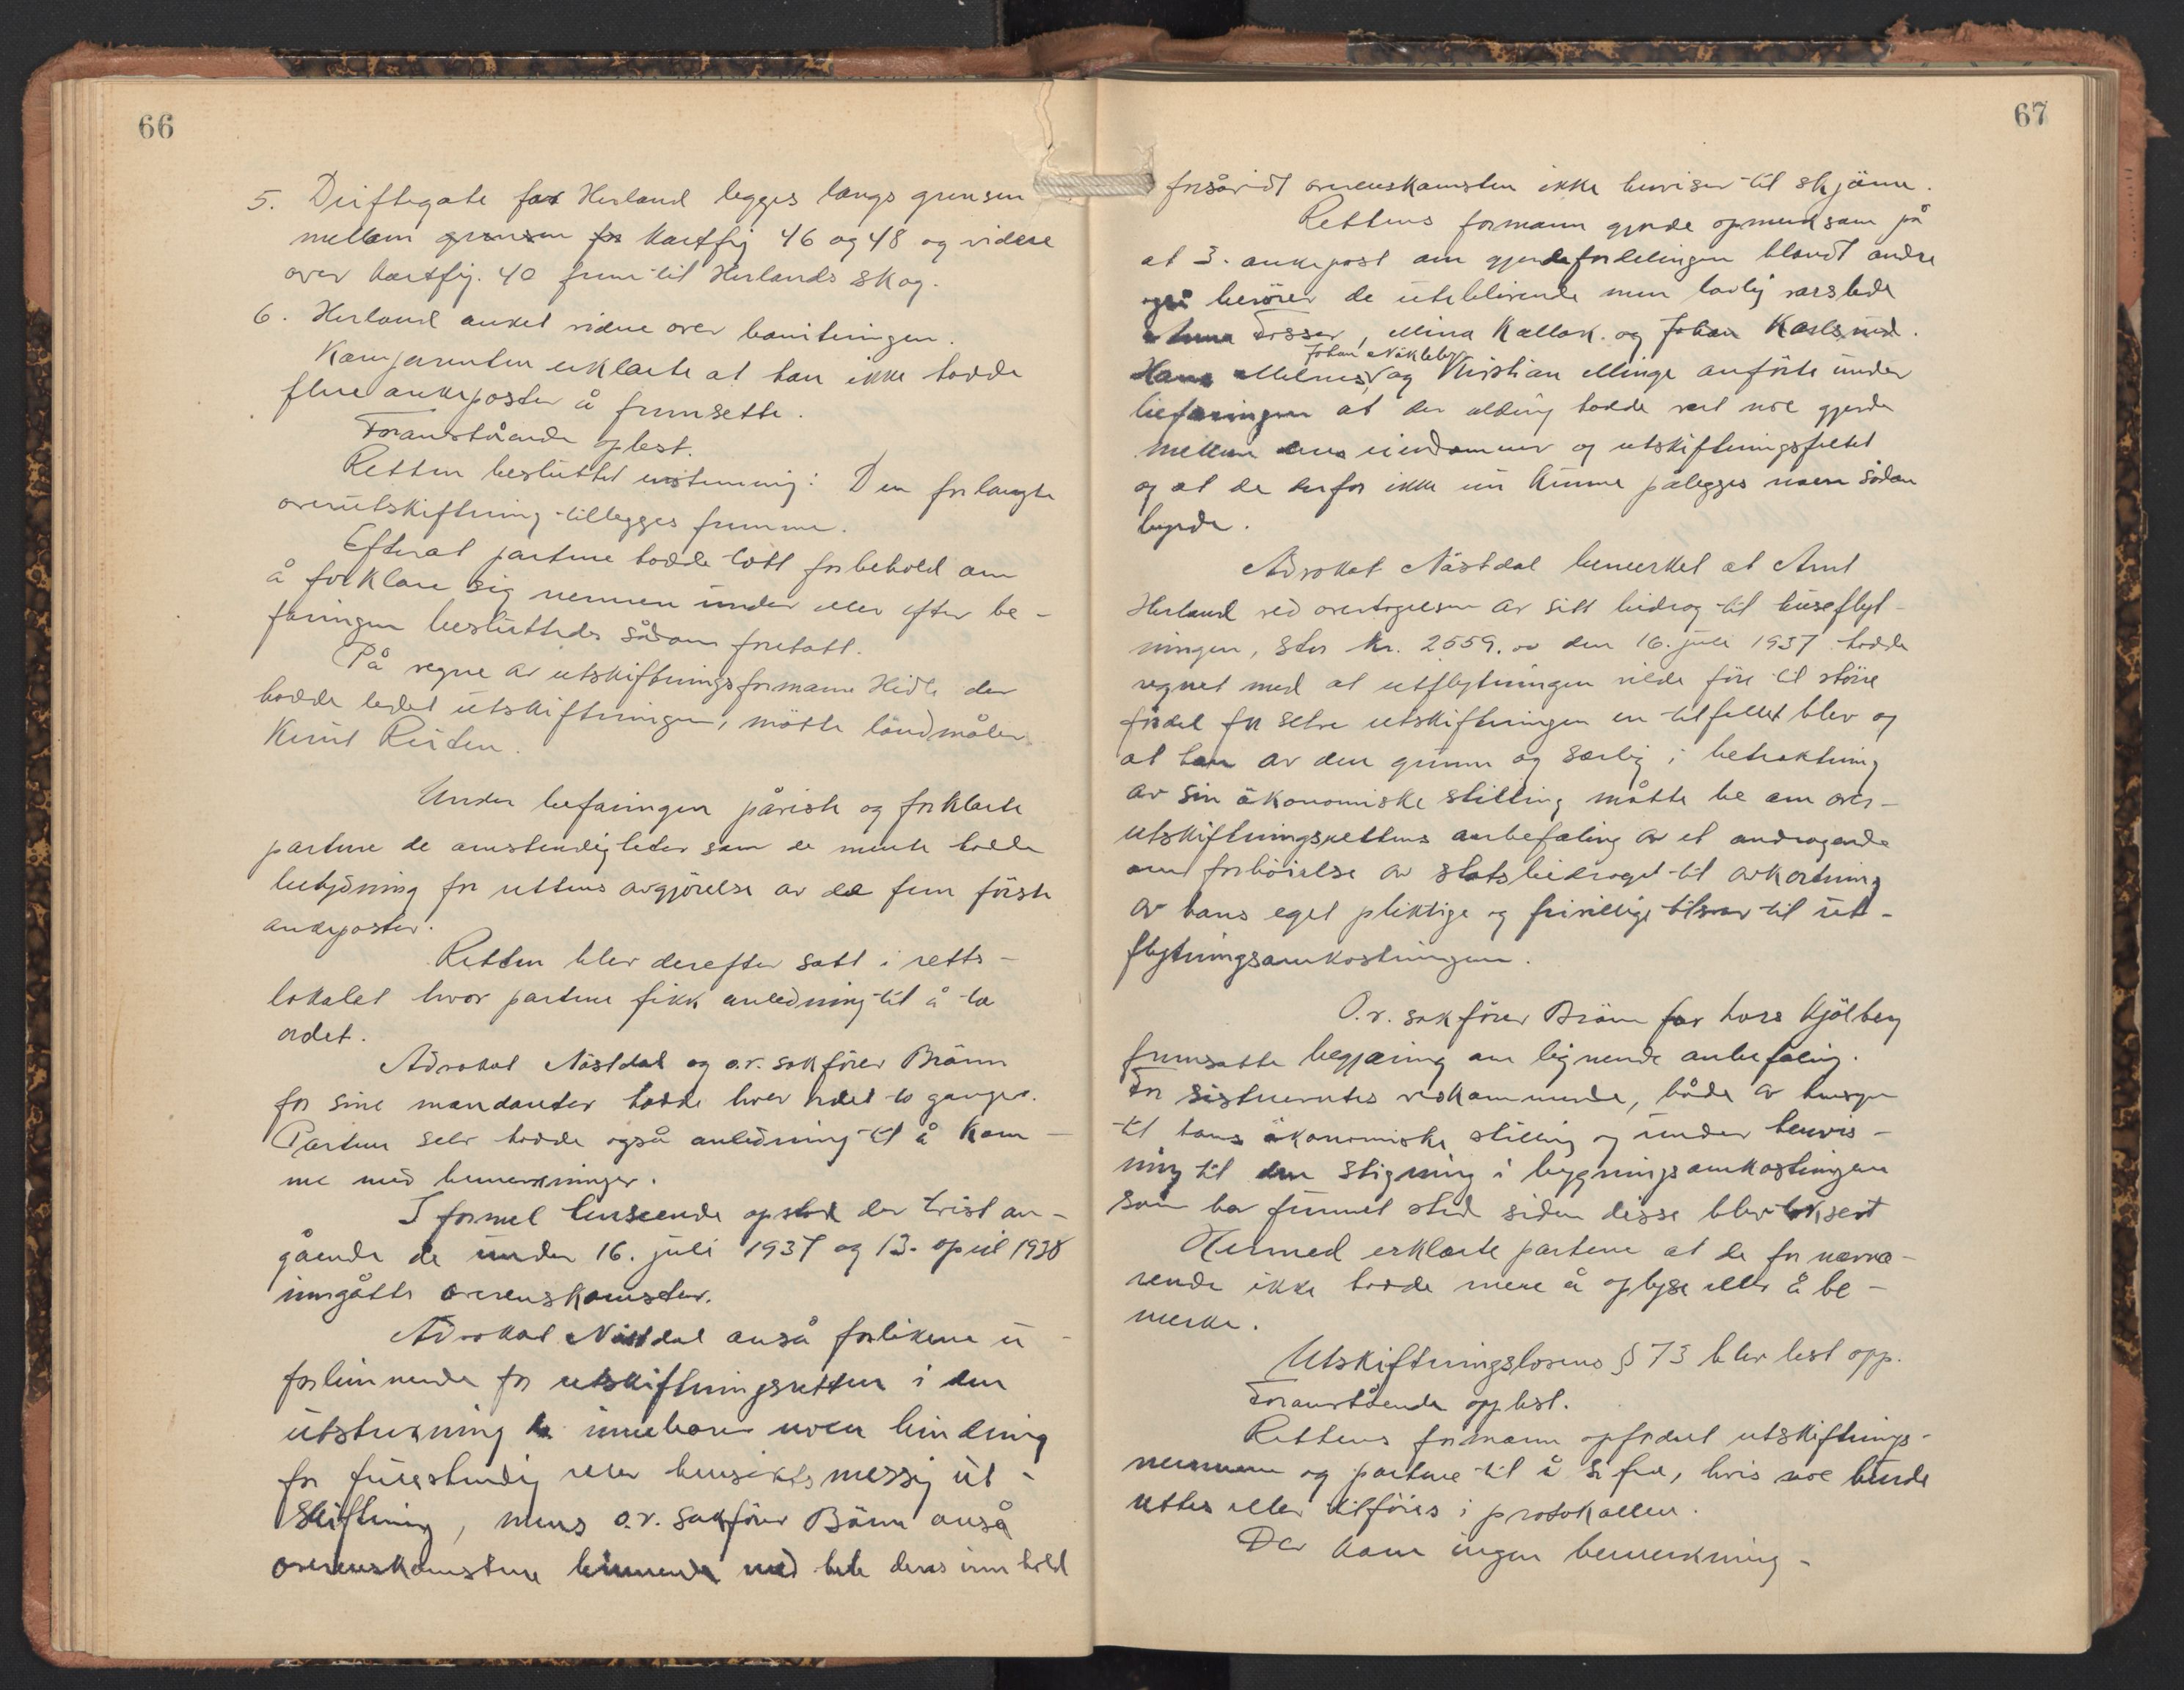 66
5. Driftegate for Herland legges langs grensen
mellem grensen for kartfig 46 og 48 og videre
over kartfig. 40 frem til Herlands skog.
6. Herland anket videre over boniteringen.
Komparenten erklærte at han ikke hadde
flere ankeposter å fremsette.
Foranstående oplest.
Retten besluttet enstemmig: Den forlangte
overutskiftning tillegges fremme.
Efterat partene hadde tatt forbehold om
å forklare sig nermere under eller efter be-
faringen besluttedes sådan foretatt.
På vegne av utskiftningsformann Hidle der
hadde ledet utskiftningen, møtte landmåler
Knut
Under befaringen påviste og forklarte
partene de omstendigheter som de mente hadde
betydning for rettens avgjørelse av de fem første
ankeposter.
Retten blev derefter satt i retts-
lokalet hvor partene fikk anledning til å ta
ordet.
Advokat Nästdal og o.r. sakfører Bränn
for sine mandanter hadde hver ordet to ganger.
Partene selv hadde også anledning til å kom-
me med bemerkninger.
I formel henseende opstod der tvist an-
gående de under 16. juli 1937 og 13. april 1938
inngåtte overenskomster.
Advokat Nästdal anså forlikene u-
forbinnende for utskiftningsretten i den
utstrekning de innebærer noen binding
for fullstendig eller hensiktsmessig ut-
skiftning, mens o.r. sakfører Bränn anså
overenskomstene binnende med hele deres innhold
67
forsåvidt overenskomsten ikke henviser til skjønn.
Rettens formann gjorde opmerksom på
at 3. ankepost om gjerdefordelingen blandt andre
også berører de uteblivende men lovlig varslede
Fosser, Mina Kallak. og Johan Karlsrud.
Johan Näkleby
Hans Melnes og Kristian Minge anførte under
befaringen at der aldrig hadde vært noe gjerde
mellem deres eiendommer og utskiftningsfeltet
og at de derfor ikke nu kunne pålegges noen sådan
byrde.
Advokat Nästdal bemerket at Arnt
Herland ved overtagelsen av sitt bidrag til huseflyt-
ningen, stor kr. 2659.00 den 16. juli 1937 hadde
regnet med at utflytningen vilde føre til større
fordel for selve utskiftningen en tilfellet blev og
at han av den grunn og særlig i betraktning
av sin økonomiske stilling måtte be om over-
utskiftningsrettens anbefaling av et andragende
om forhøielse av statsbidraget til avkortning
av hans eget pliktige og frivillige tilsvar til ut-
flytningsomkostningen.
O.r. sakfører Bränn for Lars Kjölberg
fremsatte begjæring om lignende anbefaling.
For sistnevntes vedkommende, både av hensyn
til hans økonomiske stilling og under henvis-
ning til den stigning i bygningsomkostningene
som har funnet sted siden disse blev taksert
Hermed erklærte partene at de for nærvæ-
rende ikke hadde mere å oplyse eller å be-
merke.
Utskiftningslovens § 73 blev lest opp.
Foranstående opplest.
Rettens formann opfordret utskiftnings-
nemnnen og partene til å si fra, hvis noe burde
rettes eller tilføies i protokollen.
Der kom ingen bemerkning -